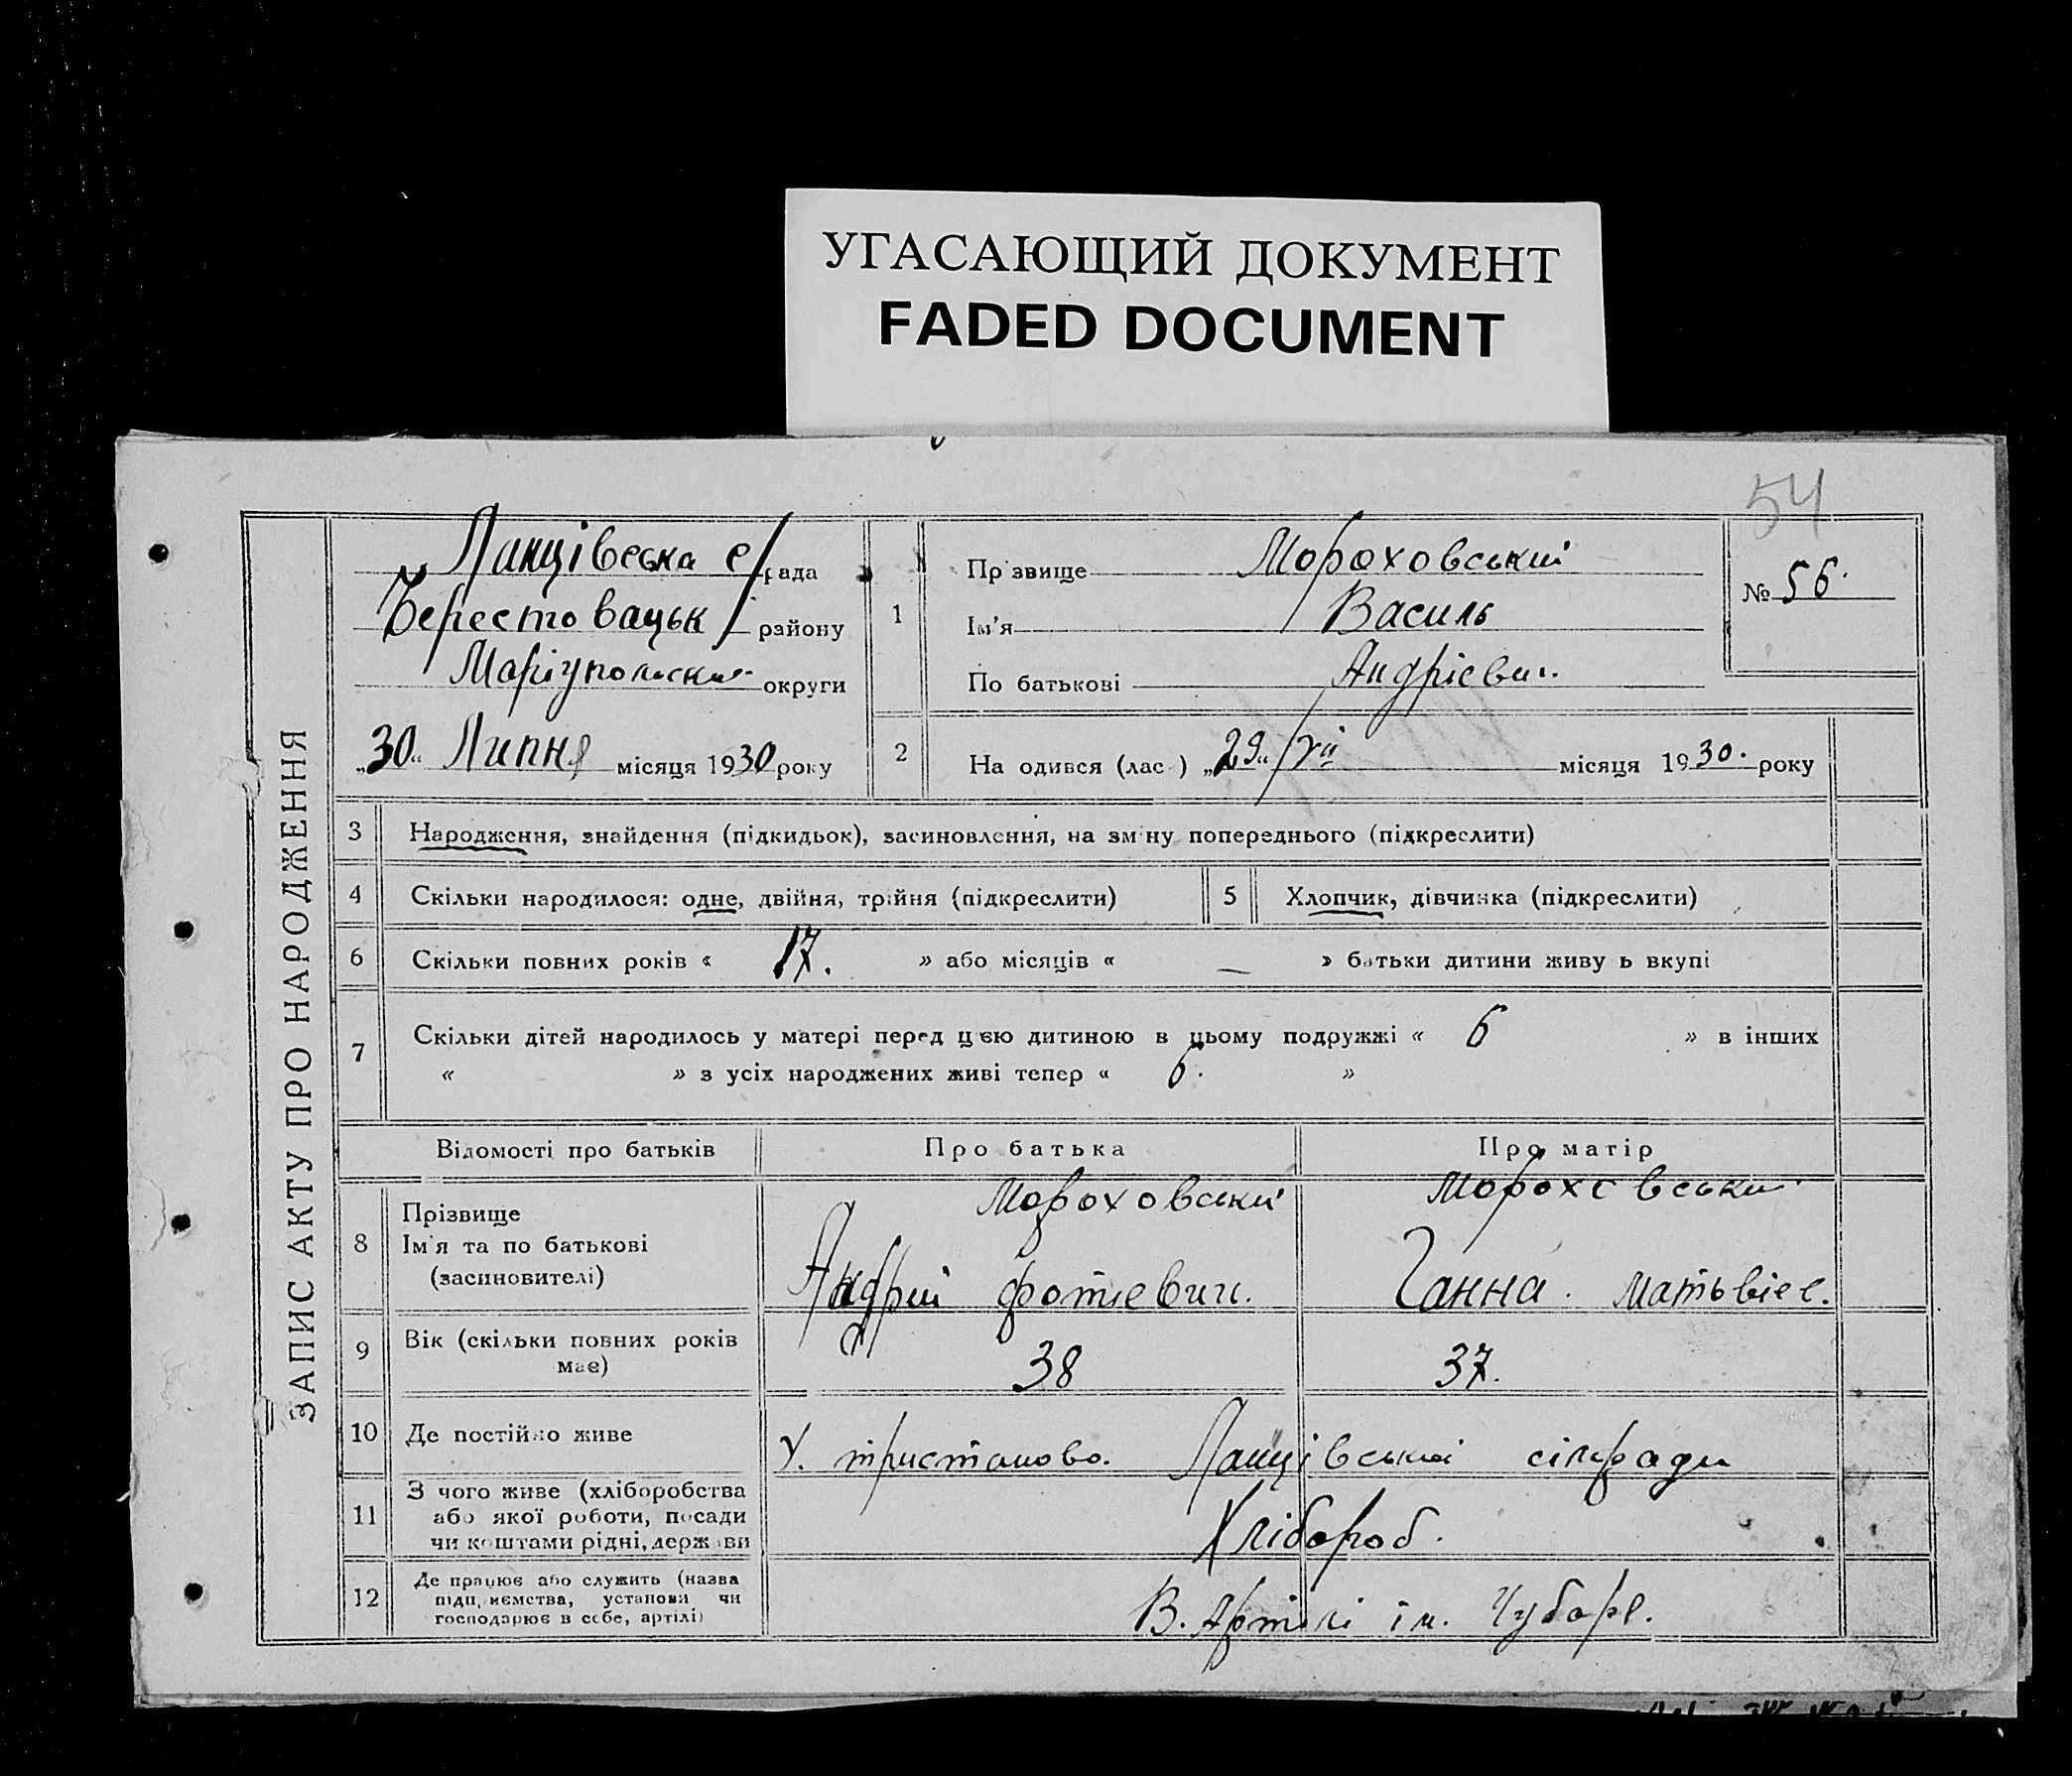 УГАСАЮЩИЙ ДОКУМЕНТ
FADED DOCUMENT
54
ЗАПИС АКТУ ПРО НАРОДЖЕННЯ
Ланцівська с/рада
Берестовацьк/ району
Маріупольськ округи
„30“ Липня місяця 1930 року
1
Прізвище Мороховський
Ім'я Василь
По батькові Андрієвич.
№ 56.
2
На одився (лас ) „29“ VII місяця 1930. року
3 Народження, знайдення (підкидьок), засиновлення, на зміну попереднього (підкреслити)
4 Скільки народилося: одне, двійня, трійня (підкреслити)
5 Хлопчик, дівчинка (підкреслити)
6 Скільки повних років « 17. » або місяців « — » батьки дитини живу ь вкупі
7 Скільки дітей народилось у матері перед цією дитиною в цьому подружжі « 6 » в інших
« » з усіх народжених живі тепер « 6. »
Відомості про батьків Про батька Про матір
8 Прізвище
Ім'я та по батькові
(засиновителі)
Мороховський
Андрій Фотієвич.
Мороховськи
Ганна. Матьвіев.
9 Вік (скільки повних років
має)
38
37.
10 Де постійно живе
Х. Тристаново. Ланцівської сільради
11 З чого живе (хліборобства
або якої роботи, посади
чи коштами рідні, держави
Хлібороб.
12 Де працює або служить (назва
підприємства, установи чи
господарює в себе, артілі)
В. Артілі ім. Чубаря.